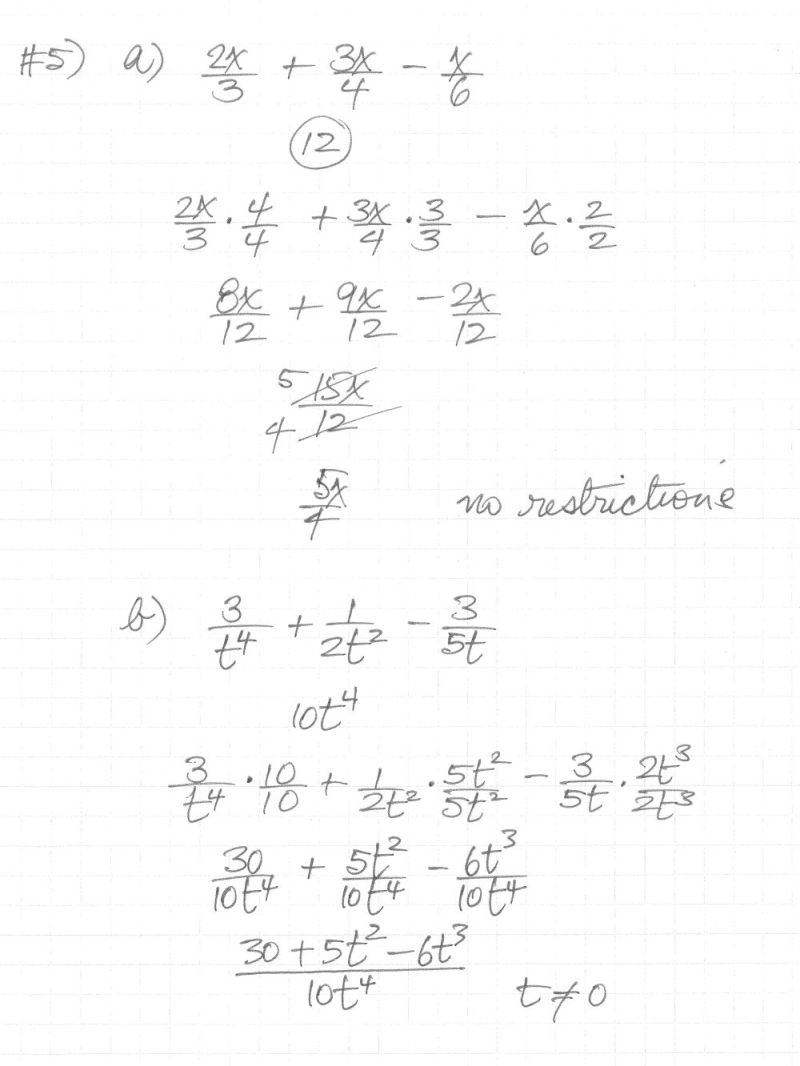 #5) a) 2x/3 + 3x/4 - x/6
12
2x/3 · 4/4 + 3x/4 · 3/3 - x/6 · 2/2
8x/12 + 9x/12 - 2x/12
5 15x / 4 12
5x/4 no restrictions
b) 3/t⁴ + 1/2t² - 3/5t
10t⁴
3/t⁴ · 10/10 + 1/2t² · 5t²/5t² - 3/5t · 2t³/2t³
30/10t⁴ + 5t²/10t⁴ - 6t³/10t⁴
30 + 5t² - 6t³/10t⁴ t ≠ 0